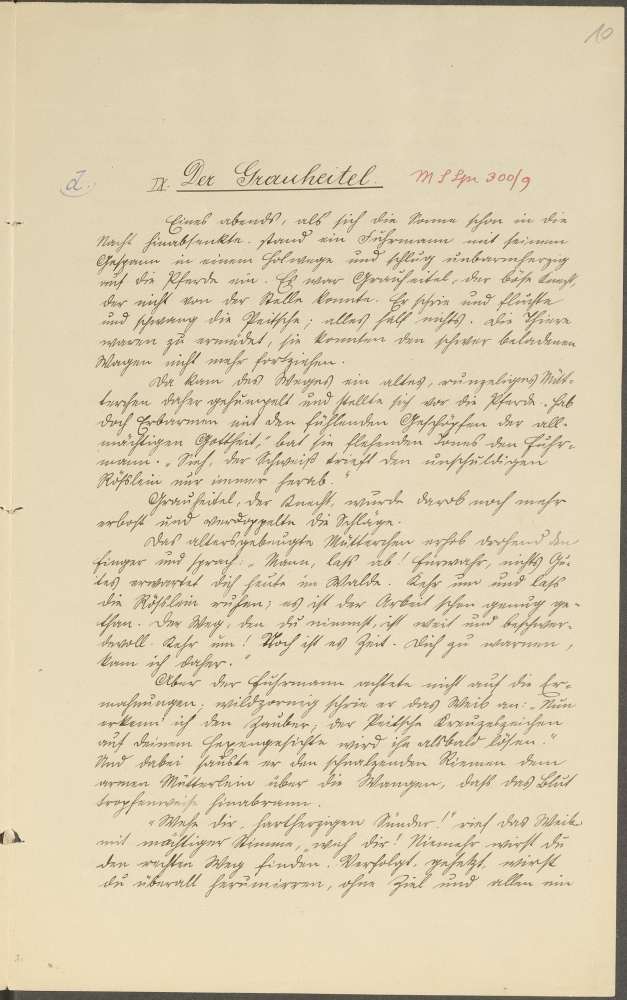 10
d.
IX. Der Grauheitel.
M S Spr 300/9
Eines abends, als sich die Sonne schon in die
Nacht hinabsenkte, stand ein Fuhrmann mit seinem
Gespann in einem Holwege und schlug unbarmherzig
auf die Pferde ein. Es war Grauheitel, der böse Knecht,
der nicht von der Stelle konnte. Er schrie und fluchte
und schwang die Peitsche; alles half nichts. Die Thiere
waren zu ermüdet, sie konnten den schwer beladenen
Wagen nicht mehr fortziehen.
Da kam des Weges ein altes, runzeliges Müt-
terchen daher gehumpelt und stellte sich vor die Pferde. „Hab
doch Erbarmen mit den fühlenden Geschöpfen der all-
mächtigen Gottheit," bat sie flehenden Tones den Fuhr-
mann. „Sieh, der Schweiß trieft den unschuldigen
Rößlein nur immer herab."
Grauheitel, der Knecht, wurde darob noch mehr
erbost und verdoppelte die Schläge.
Das altersgebeugte Mütterchen erhob drohend den
Finger und sprach: „Mann, laß ab! Fürwahr, nichts Gu-
tes erwartet dich heute im Walde. Kehr um und laß
die Rößlein ruhen; es ist der Arbeit schon genug ge-
than. Der Weg, den du nimmst, ist weit und beschwer-
devoll. Kehr um! Noch ist es Zeit. Dich zu warnen,
kam ich daher."
Aber der Fuhrmann achtete nicht auf die Er-
mahnungen; wildzornig schrie er das Weib an: „Nun
erkenn' ich den Zauber; der Peitsche Kreuzeszeichen
auf deinem Hexengesichte wird ihn alsbald lösen."
Und dabei sauste er den schnalzenden Riemen dem
armen Mütterlein über die Wangen, daß das Blut
tropfenweise hinabrann.
„Wehe dir, hartherzigen Sünder!" rief das Weib
mit mächtiger Stimme, „weh dir! Niemehr wirst du
den rechten Weg finden. Verfolgt, gehetzt wirst
du überall herumirren, ohne Ziel und allen ein